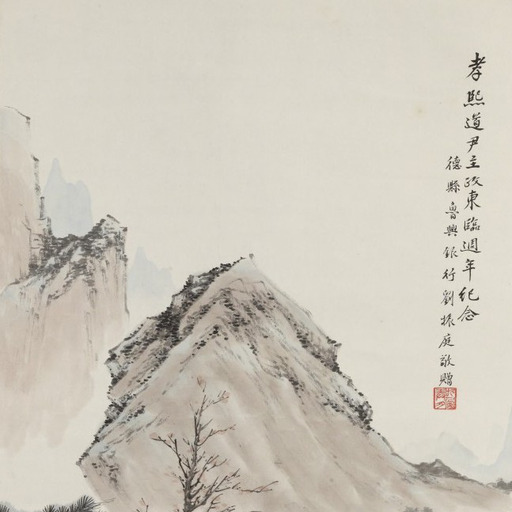 孝熙道尹主政東臨週年紀念
德縣魯興銀行劉振庭敬贈